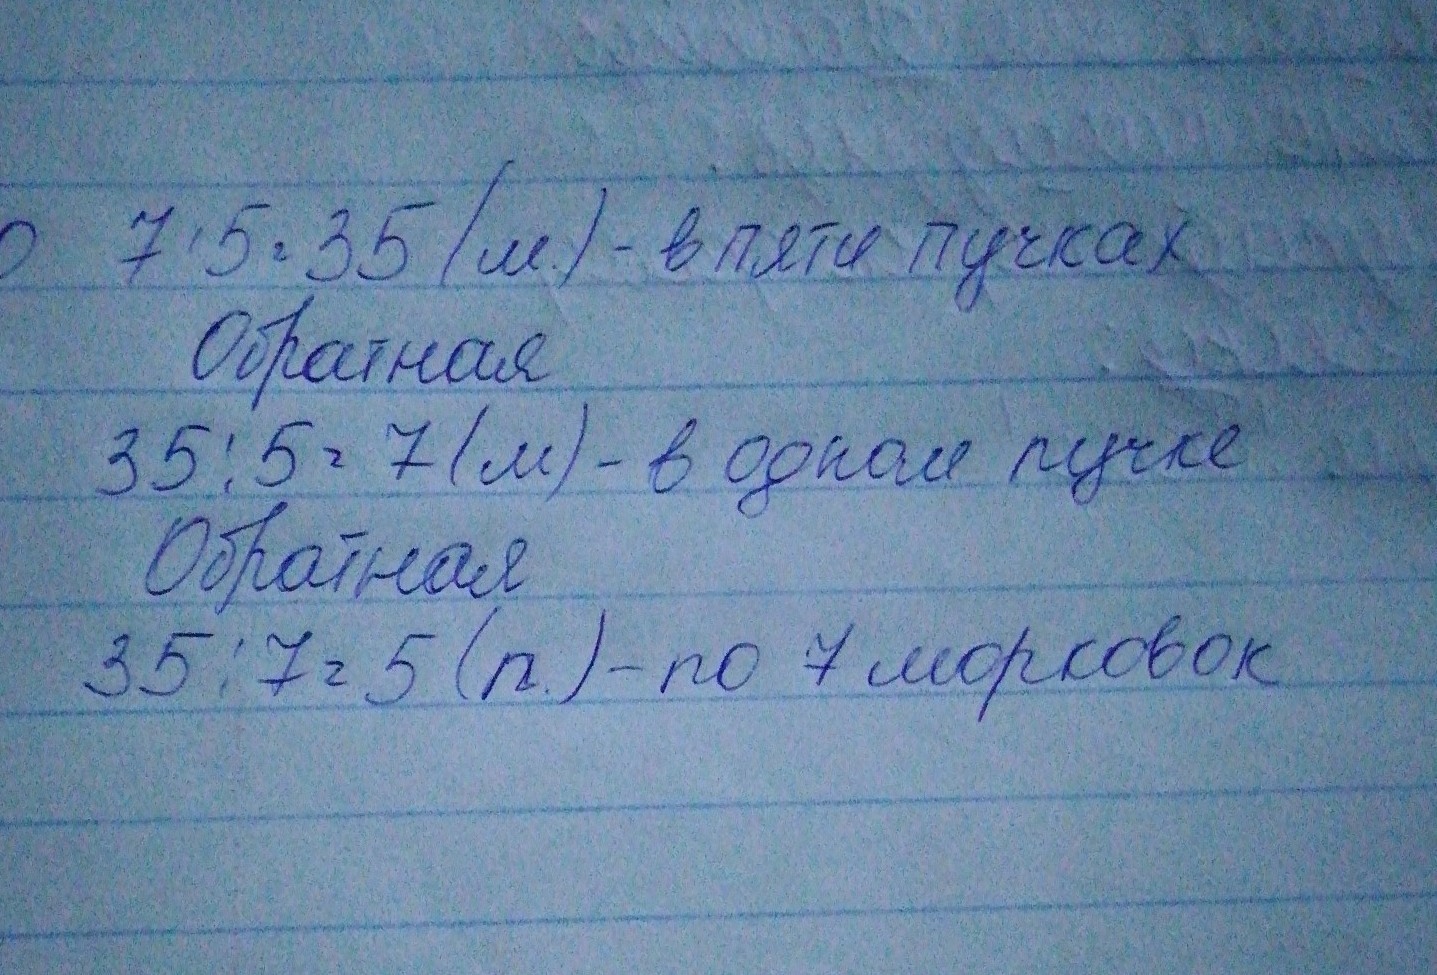 7·5=35 (м.) - в пяти пучках
Обратная
35:5=7 (м) - в одном пучке
Обратная
35:7=5 (п.) - по 7 морковок